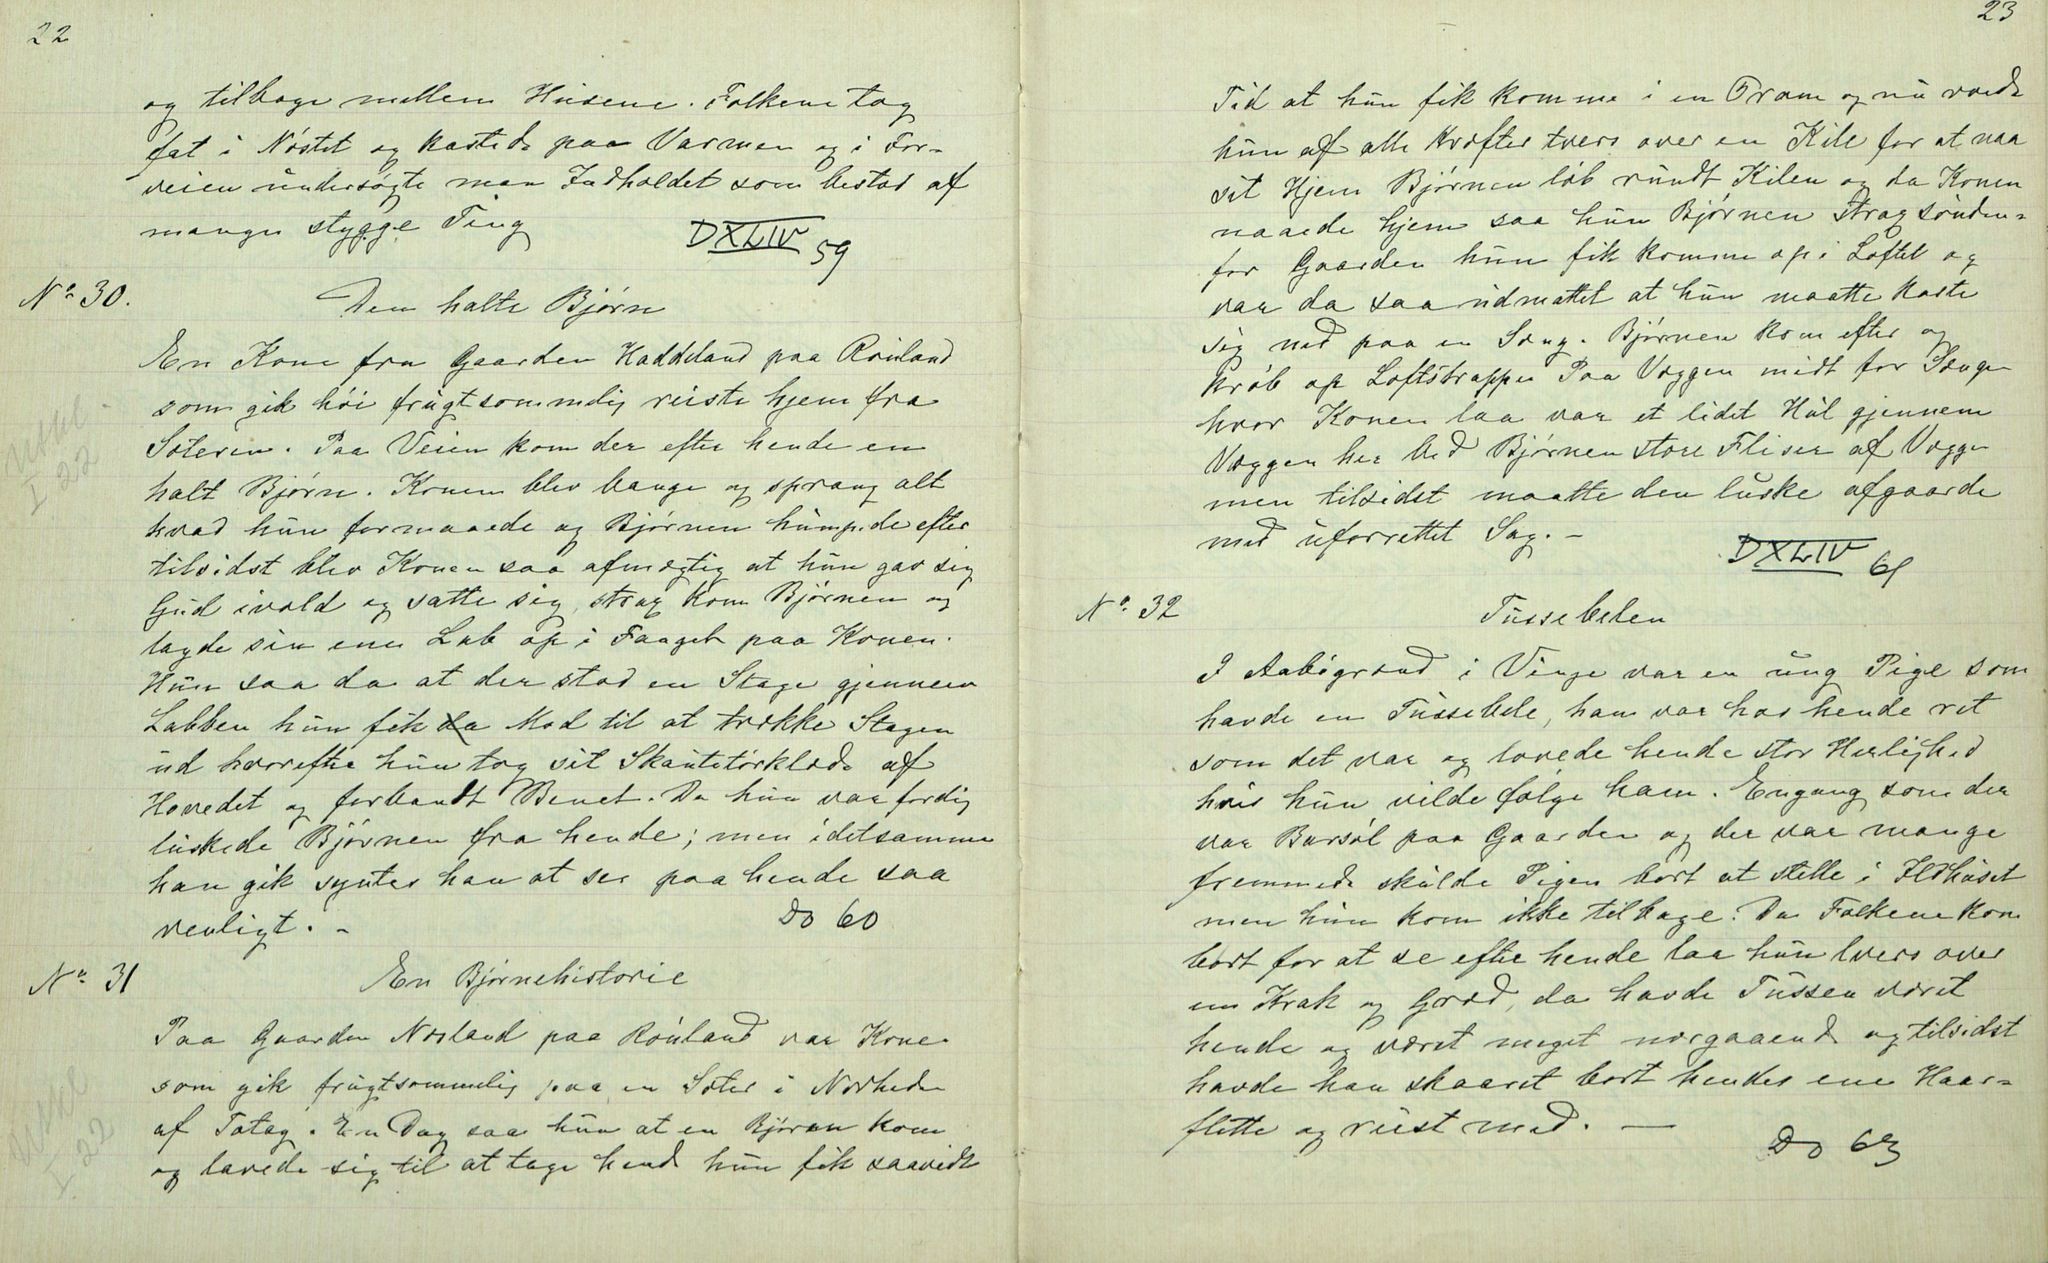 22
og tilbage mellem Husene. Folkene tog
fat i Nøstet og kastede paa Varmen og i For-
veien undersøgte man Indholdet som bestod af
mange stygge Ting
DXLIV 59
No 30. Den halte Bjørn
En Kone fra Gaarden Haddeland paa Rauland
som gik høi frugtsommelig reiste hjem fra
Sæteren. Paa Veien kom der efter hende en
halt Bjørn. Konen blev bange og sprang alt
hvad hun formaaede og Bjørnen humpede efter
tilsidst blev Konen saa afmægtig at hun gav sig
Gud ivold og satte sig, strax kom Bjørnen og
lagde sin ene Lab op i Fanget paa Konen.
Hun saa da at der stod en Stage gjennem
Labben hun fik da Mod til at trække Stagen
ud hvorefter hun tog sit Skautetørklæde af
Hovedet og forbandt Benet. Da hun var færdig
luskede Bjørnen fra hende; men idetsamme
han gik syntes han at se paa hende saa
venligt. -
Do 60
No 31 En Bjørnehistorie
Paa Gaarden Næsland paa Rauland var Kone
som gik frugtsommelig paa en Sæter i Nærheden
af Totag. En Dag saa hun at en Bjørn kom
og lavede sig til at tage hende hun fik saavidt
I 22
I 22
23
Tid at hun fik komme i en Pram og nu roede
hun af alle Kræfter tvers over en Kile for at naa
sit Hjem Bjørnen løb rundt Kilen og da Konen
naaede hjem saa hun Bjørnen strax sønden-
for Gaarden hun fik komme op i Loftet og
var da saa udmattet at hun maatte kaste
sig ned paa en Seng. Bjørnen kom efter og
krøb op Loftstrappen Paa Væggen midt for Sengen
hvor Konen laa var et lidet Hul gjennem
Væggen her bed Bjørnen store Fliser af Væggen
men tilsidst maatte den luske afgaarde
med uforrettet Sag. -
DXLIV 61
No 32 Tussebelen
I Aabøgrend i Vinje var en ung Pige som
havde en Tussebele, han var hos hende ret
som det var og lovede hende stor Herlighed
hvis hun vilde følge ham. Engang som der
var Barsøl paa Gaarden og der var mange
fremmede skulde Pigen bort at stelle i Ildhuset
men hun kom ikke tilbage. Da Folkene kom
bort for at se efter hende laa hun tvers over
en Krak og Græd, da havde Tussen været
hende og været meget nærgaaende og tilsidst
havde han skaaret bort hendes ene Haar-
flette og reist med. -
Do 63